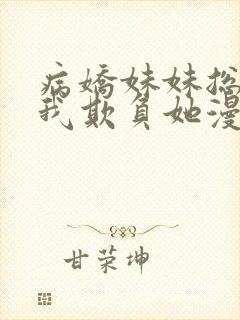 病嬌妹妹总
我欺負她漫
甘荣坤